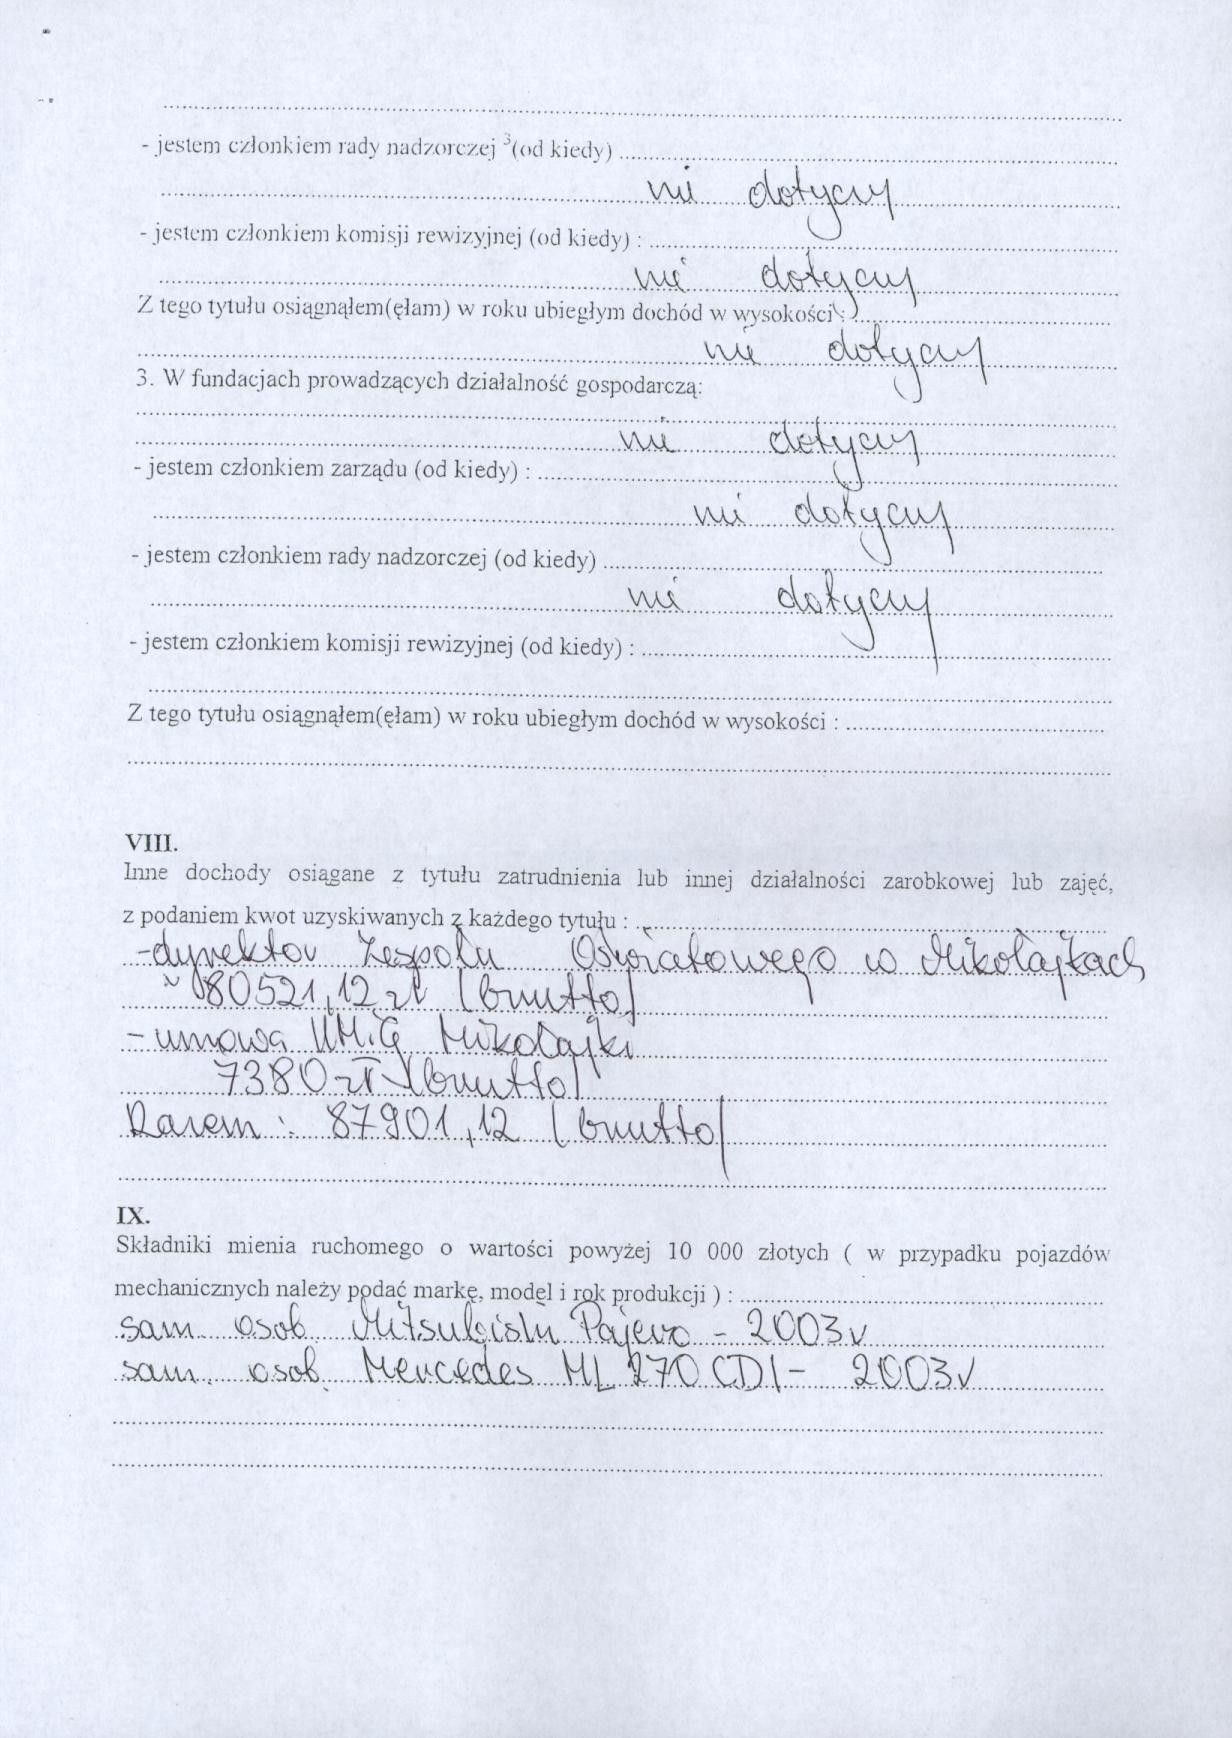 - jestem członkiem rady nadzorczej ³(od kiedy)
nie dotyczy
- jestem członkiem komisji rewizyjnej (od kiedy) :
nie dotyczy
Z tego tytułu osiągnąłem(ęłam) w roku ubiegłym dochód w wysokości :
nie dotyczy
3. W fundacjach prowadzących działalność gospodarczą:
nie dotyczy
- jestem członkiem zarządu (od kiedy) :
nie dotyczy
- jestem członkiem rady nadzorczej (od kiedy)
nie dotyczy
- jestem członkiem komisji rewizyjnej (od kiedy) :
Z tego tytułu osiągnąłem(ęłam) w roku ubiegłym dochód w wysokości :
VIII.
Inne dochody osiągane z tytułu zatrudnienia lub innej działalności zarobkowej lub zajęć,
z podaniem kwot uzyskiwanych z każdego tytułu :
- dyrektor Zespołu Oświatowego w Mikołajkach
~ 80521,12 zł (brutto)
- umowa UMiG Mikołajki
7380 zł (brutto)
Razem : 87901,12 (brutto)
IX.
Składniki mienia ruchomego o wartości powyżej 10 000 złotych ( w przypadku pojazdów
mechanicznych należy podać markę, model i rok produkcji ) :
sam. osob. Mitsubishi Pajero - 2003r
sam. osob. Mercedes ML 270 CDI - 2003r